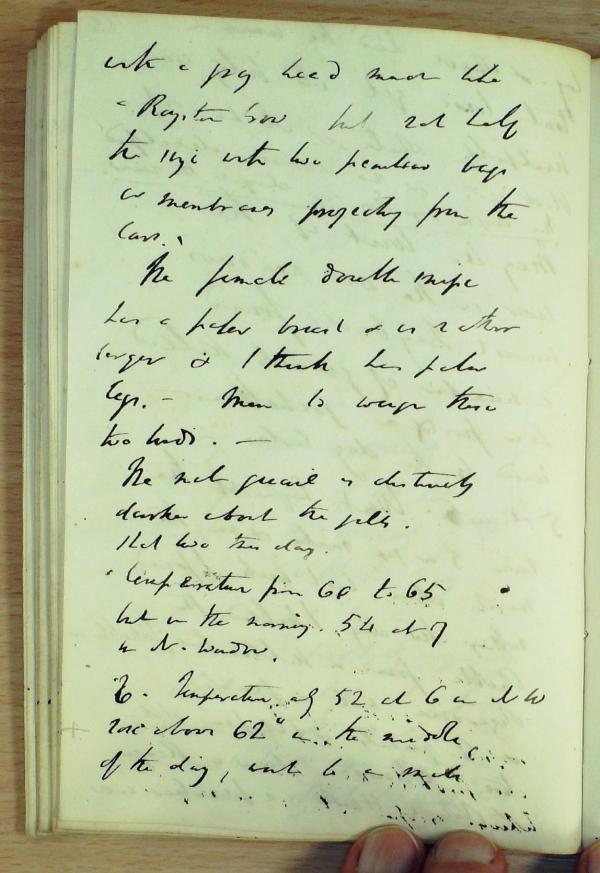 with a grey head much like
a Royston Crow but not half
the size with two peculiar bags
or membranes projecting from the
ears.
The female double snipe
has a paler breast & is rather
larger & I think has paler
legs. - Mem to weigh these
two birds. -
The male is distinctly
darker about the
Shot two this day.
Temperature from 60 to 65
but in the morning. 54 at 7
in N. Window.
6. Temperature of 52 at 6 in N W
rose above 62 in the middle
of the day, went to a